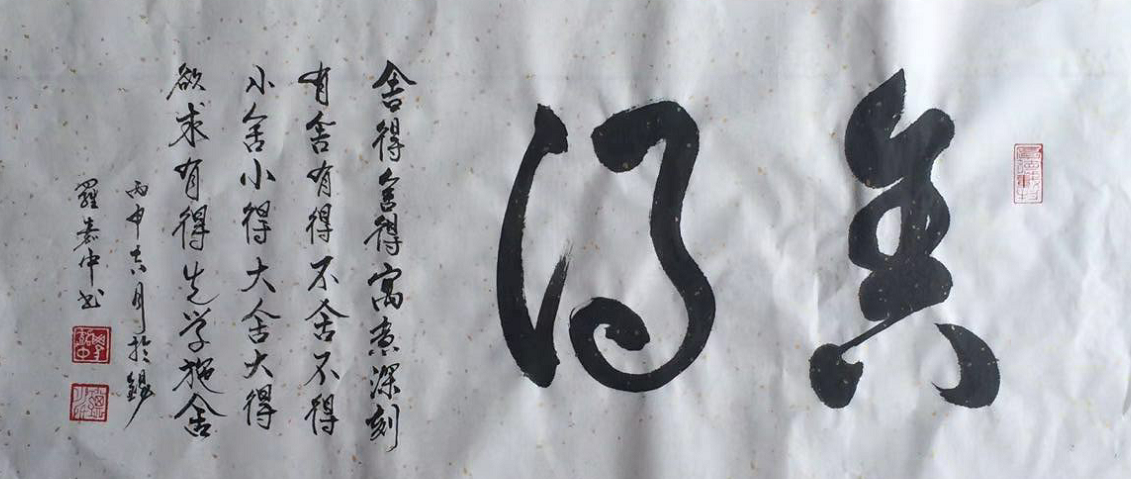 舍得
舍得舍得寓意深刻
有舍有得不舍不得
小舍小得大舍大得
欲求有得先学施舍
丙申六月於錫
羅嘉中书